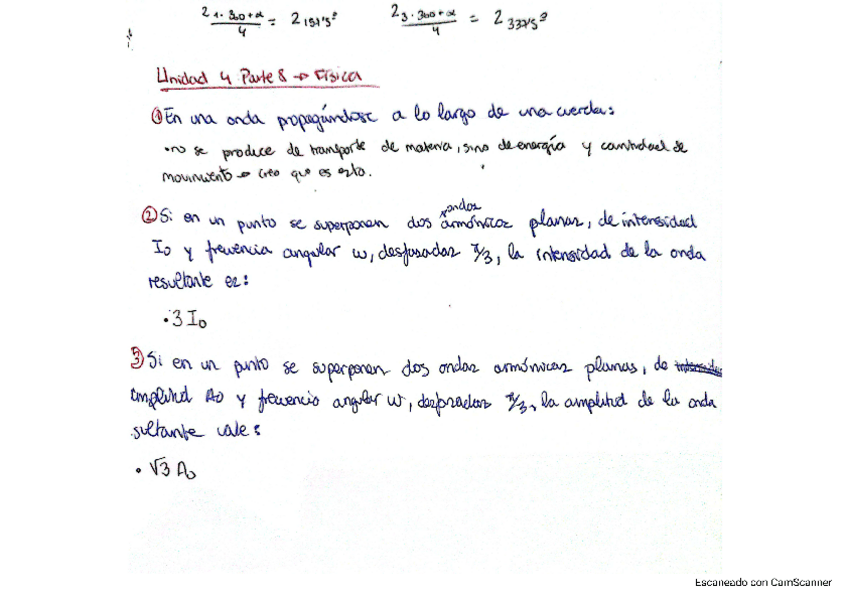 2 1·360+α / 4 = 2 157'5º   2 3·360+α / 4 = 2 337'5º
Unidad 4 Parte 8 → Física
① En una onda propagándose a lo largo de una cuerda:
• no se produce de transporte de materia, sino de energía y cantidad de
movimiento → creo que es esto.
② Si en un punto se superponen dos ondas armónicas planas, de intensidad
I₀ y frecuencia angular ω, desfasadas π/3, la intensidad de la onda
resultante es:
• 3 I₀
③ Si en un punto se superponen dos ondas armónicas planas, de
amplitud A₀ y frecuencia angular ω, desfasadas π/3, la amplitud de la onda
sultante vale:
• √3 A₀
Escaneado con CamScanner